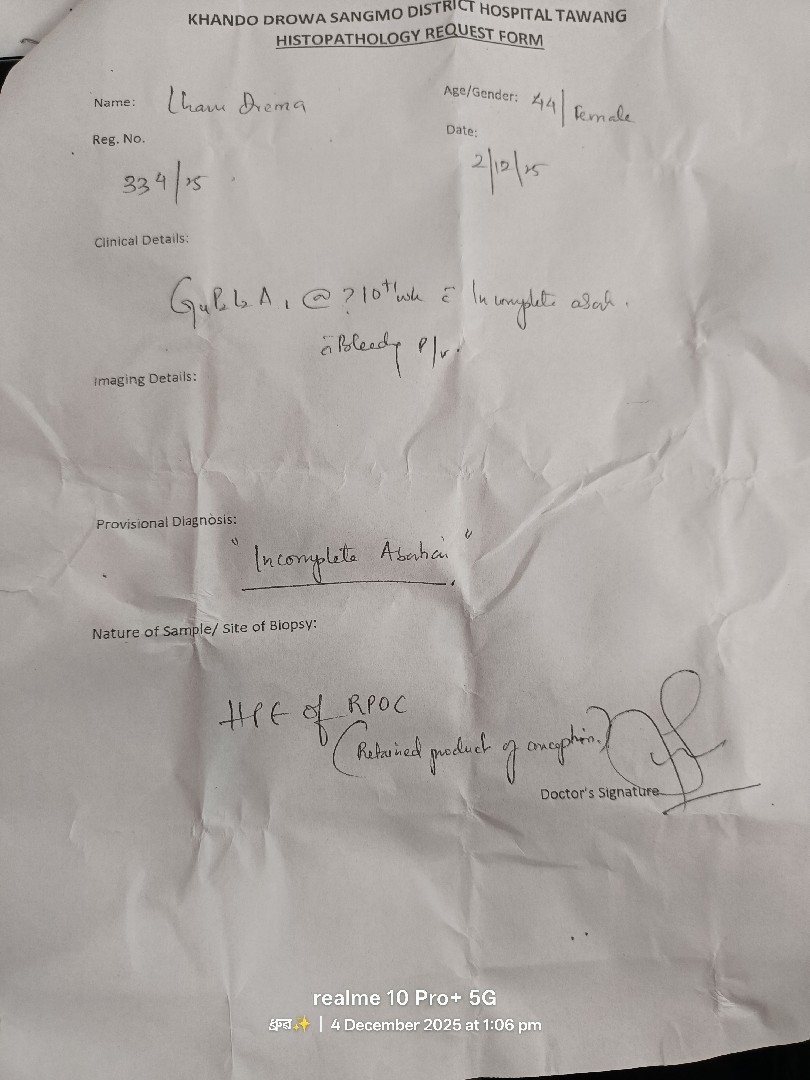 KHANDO DROWA SANGMO DISTRICT HOSPITAL TAWANG
HISTOPATHOLOGY REQUEST FORM
Name: Lham Drema
Age/Gender: 44| Female
Reg. No.
334/25
Date:
2/12/25
Clinical Details:
@ ? 10+ wk c̄ Incomplete
c̄ Bleedy P/v.
Imaging Details:
Provisional Diagnosis:
"Incomplete
Nature of Sample/ Site of Biopsy:
HPE of RPOC
(Retained product of conception.)
Doctor's Signature
realme 10 Pro+ 5G
✨ | 4 December 2025 at 1:06 pm